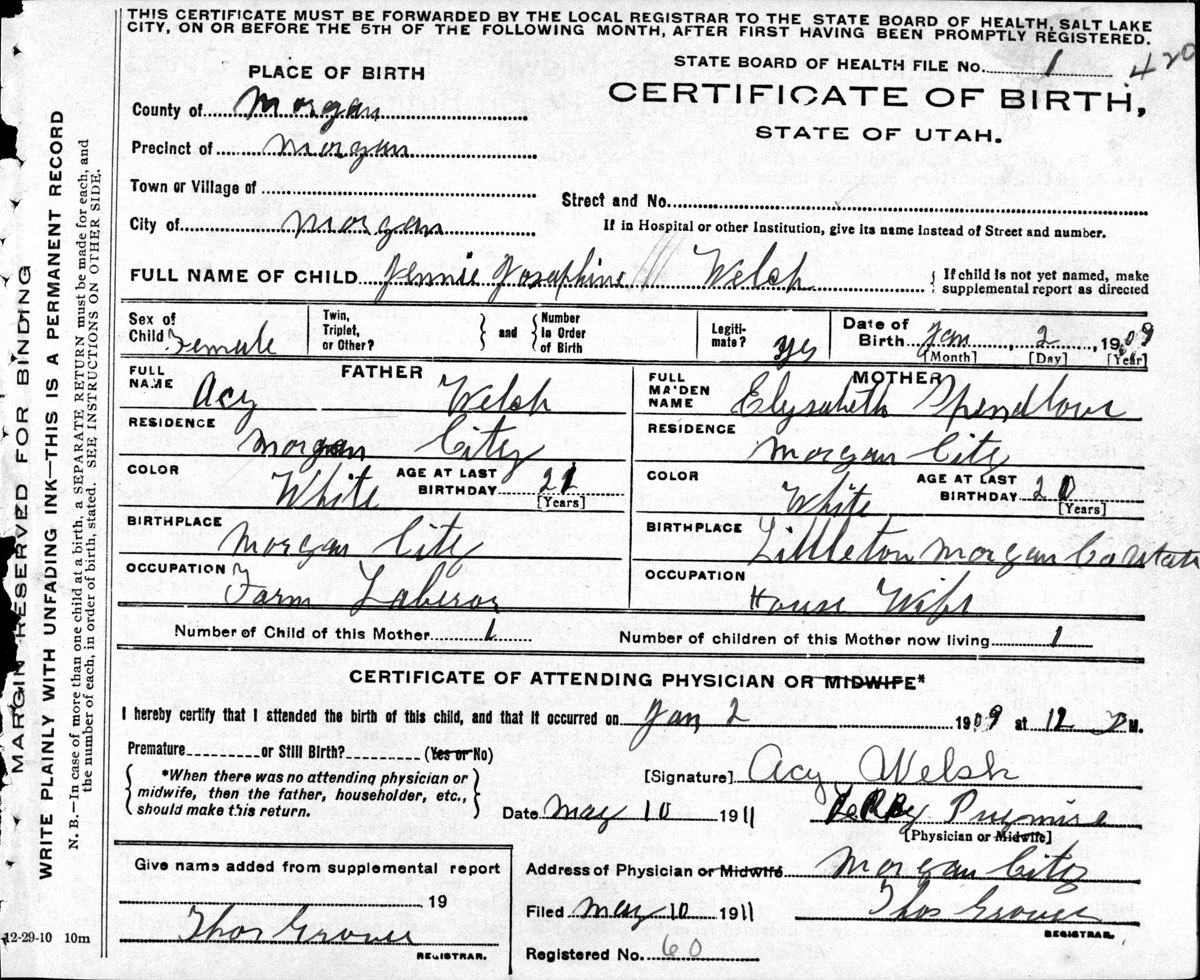 THIS CERTIFICATE MUST BE FORWARDED BY THE LOCAL REGISTRAR TO THE STATE BOARD OF HEALTH, SALT LAKE
CITY, ON OR BEFORE THE 5TH OF THE FOLLOWING MONTH, AFTER FIRST HAVING BEEN PROMPTLY REGISTERED.
PLACE OF BIRTH
STATE BOARD OF HEALTH FILE No. 1 420
County of Morgan
CERTIFICATE OF BIRTH,
STATE OF UTAH.
Precinct of Morgan
Town or Village of
Street and No.
City of Morgan
If in Hospital or other Institution, give its name instead of Street and number.
FULL NAME OF CHILD Jennie Josephine Welch
{ If child is not yet named, make
supplemental report as directed
Sex of Child Female
Twin, Triplet, or Other?
} and { Number in Order of Birth
Legitimate? yes
Date of Birth Jan 2, 1909
[Month] [Day] [Year]
FATHER
FULL NAME Acy Welch
MOTHER
FULL MAIDEN NAME Elysabeth Spendlove
RESIDENCE Morgan City
RESIDENCE Morgan City
COLOR White AGE AT LAST BIRTHDAY 21
[Years]
COLOR White AGE AT LAST BIRTHDAY 20
[Years]
BIRTHPLACE Morgan City
BIRTHPLACE Littleton Morgan Co Utah
OCCUPATION Farm Laberor
OCCUPATION House Wife
Number of Child of this Mother 1
Number of children of this Mother now living 1
CERTIFICATE OF ATTENDING PHYSICIAN OR MIDWIFE*
I hereby certify that I attended the birth of this child, and that it occurred on Jan 2 1909 at 12 M.
Premature or Still Birth? (Yes or No)
{ *When there was no attending physician or
midwife, then the father, householder, etc.,
should make this return. }
[Signature] Acy Welsh
Date May 10 1911
[Physician or Midwife]
Give name added from supplemental report
19
Thos Grover
REGISTRAR.
Address of Physician or Midwife Morgan City
Filed May 10 1911 Thos Grover
REGISTRAR.
Registered No. 60
12-29-10 10m
MARGIN RESERVED FOR BINDING
WRITE PLAINLY WITH UNFADING INK—THIS IS A PERMANENT RECORD
N. B.—In case of more than one child at a birth, a SEPARATE RETURN must be made for each, and
the number of each, in order of birth, stated. SEE INSTRUCTIONS ON OTHER SIDE.